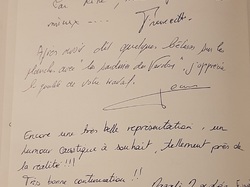 mieux ...
Après avoir dit quelques bêtises sur la
planche avec "la sardine du Verdon", j'apprécie
le public de votre
Encore une très belle représentation, un
humour caustique à souhait, tellement près de
la réalité !!!
Très bonne continuation !!